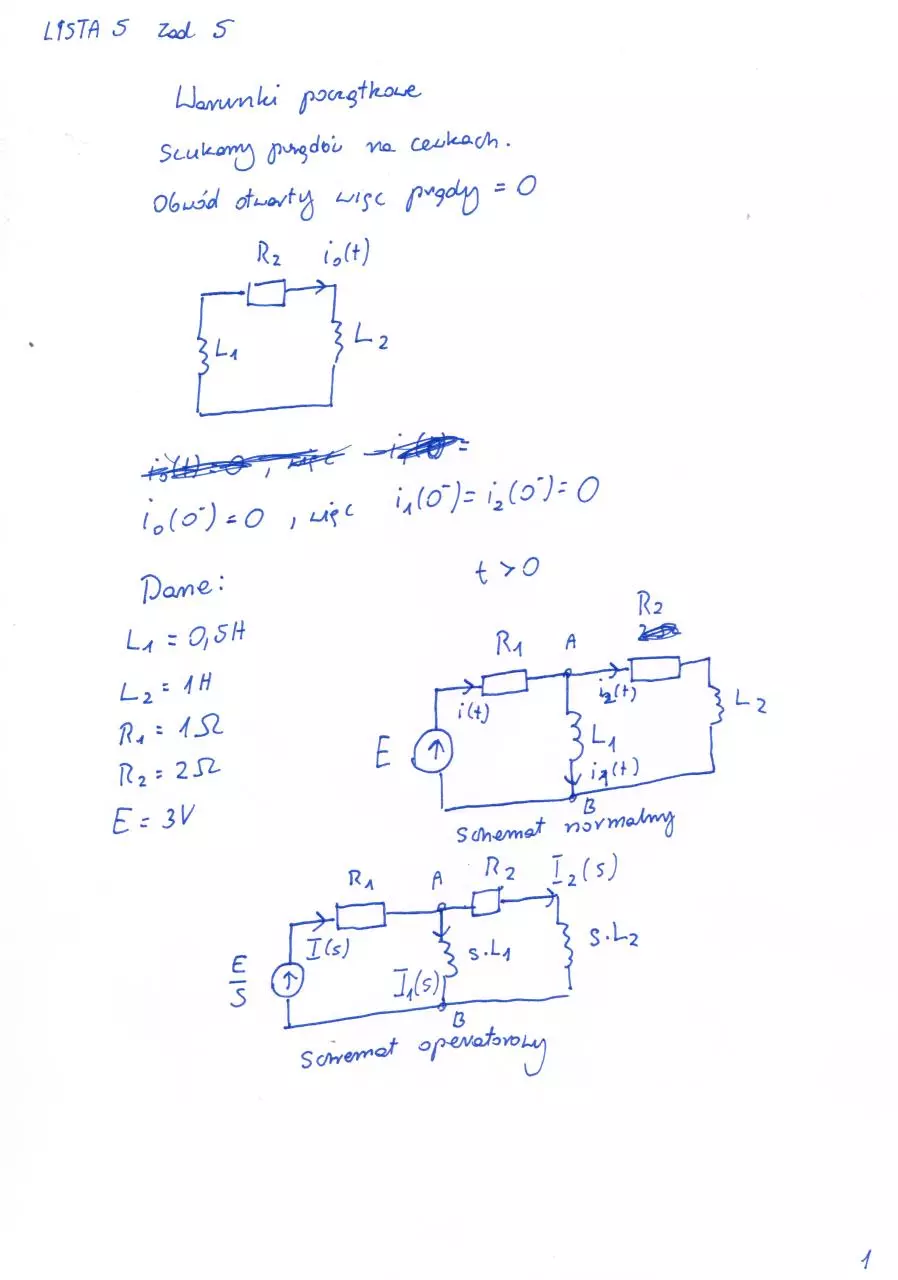 LISTA 5 Zad 5
Warunki początkowe
Szukamy prądów na cewkach.
Obwód otwarty więc prądy = 0
R2 i0(t)
L1 L2
i0(0⁻) = 0 , więc i1(0⁻) = i2(0⁻) = 0
Dane: t > 0
L1 = 0,5H
L2 = 1H
R1 = 1Ω
R2 = 2Ω
E = 3V
R1 A R2
i(t) i2(t) L2
E L1
i1(t)
B
Schemat normalny
R1 A R2 I2(s)
I(s) s.L1 s.L2
E/s I1(s)
B
Schemat operatorowy
1